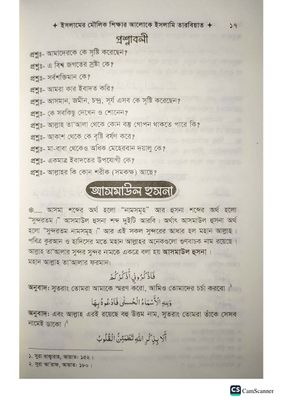 ✦ ইসলামের মৌলিক শিক্ষার আলোকে ইসলামি তারবিয়াত ✦ ১৭
প্রশ্নাবলী
প্রশ্নঃ- আমাদেরকে কে সৃষ্টি করেছেন?
প্রশ্নঃ- এ বিশ্ব জগতের স্রষ্টা কে?
প্রশ্নঃ- সর্বশক্তিমান কে?
প্রশ্নঃ- আমরা কার ইবাদত করি?
প্রশ্নঃ- আসমান, জমীন, চন্দ্র, সূর্য এসব কে সৃষ্টি করেছেন?
প্রশ্নঃ- কে সবকিছু দেখেন ও শোনেন?
প্রশ্নঃ- আল্লাহ তা'আলা থেকে কোন বস্তু গোপন থাকতে পারে কি?
প্রশ্নঃ- আকাশ থেকে কে বৃষ্টি বর্ষণ করে?
প্রশ্নঃ- মা-বাবা থেকেও অধিক মেহেরবান দয়ালু কে?
প্রশ্নঃ- একমাত্র ইবাদতের উপযোগী কে?
প্রশ্নঃ- আল্লাহর কি কোন শরীক (সমকক্ষ) আছে?
আসমাউল হুসনা
আসমা শব্দের অর্থ হলো "নামসমূহ" আর হুসনা শব্দের অর্থ হলো
"সুন্দরতম।" আসমাউল হুসনা শব্দ দুইটি আরবি। অর্থাৎ আসমাউল হুসনা অর্থ
হলো "সুন্দরতম নামসমূহ।" আর এই সকল সুন্দরের আধার হল মহান আল্লাহ।
পবিত্র কুরআন ও হাদিসের মতে মহান আল্লাহর অনেকগুলো গুণবাচক নাম রয়েছে।
আল্লাহ তা'আলার সুন্দর সুন্দর নামকে একত্রে বলা হয় আসমাউল হুসনা।
মহান আল্লাহ তা'আলার ফরমান:
فَاذْكُرُونِي أَذْكُرْكُمْ
অনুবাদ: সুতরাং তোমরা আমাকে স্মরণ করো, আমিও তোমাদের চর্চা করবো।
وَلِلَّهِ الْأَسْمَاءُ الْحُسْنَى فَادْعُوهُ بِهَا
অনুবাদ: এবং আল্লাহ এরই রয়েছে বহু উত্তম নাম, সুতরাং তোমরা তাঁকে সেসব
নামেই ডাকো।
أَلَا بِذِكْرِ اللَّهِ تَطْمَئِنُّ الْقُلُوبُ
১. সুরা বাক্বারাহ, আয়াত: ১৫২।
২. সুরা আ'রাফ, আয়াত: ১৮০।
CS CamScanner